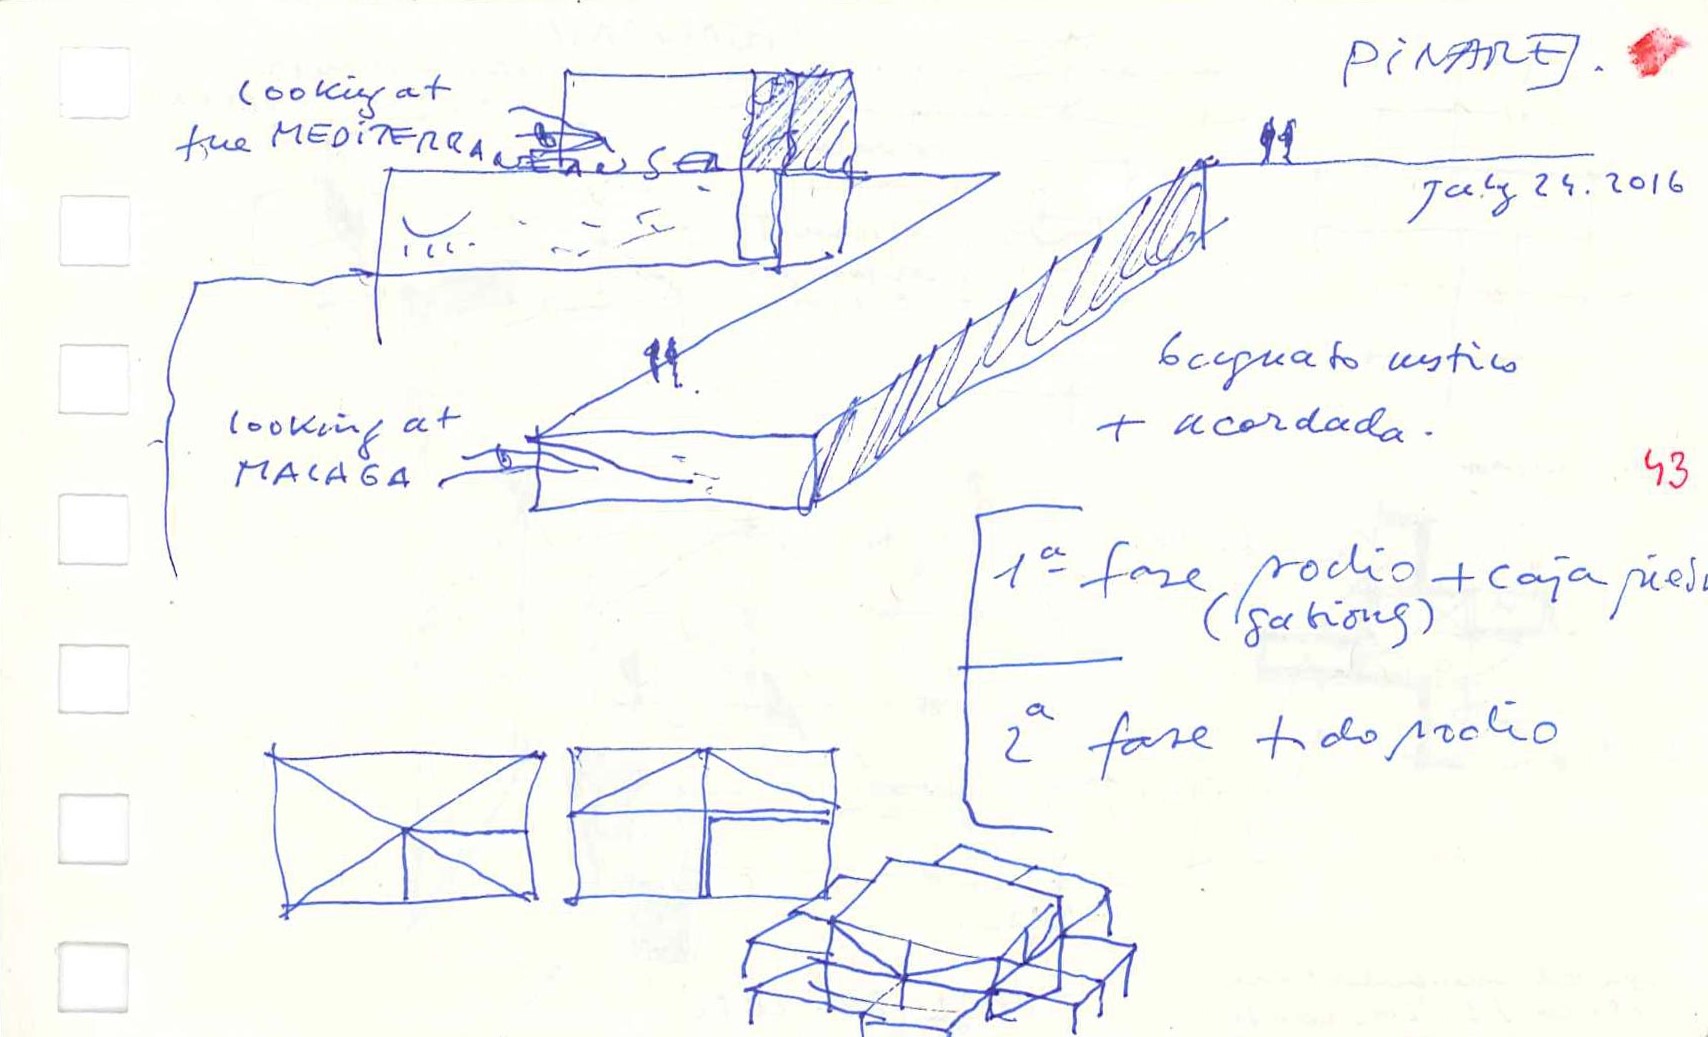 PINARES.
looking at
the MEDITERRANEAN SEA
July 24. 2016
looking at
MALAGA
+ acordada.
43
1ª fase podio + caja
(gabions)
2ª fase + do podio